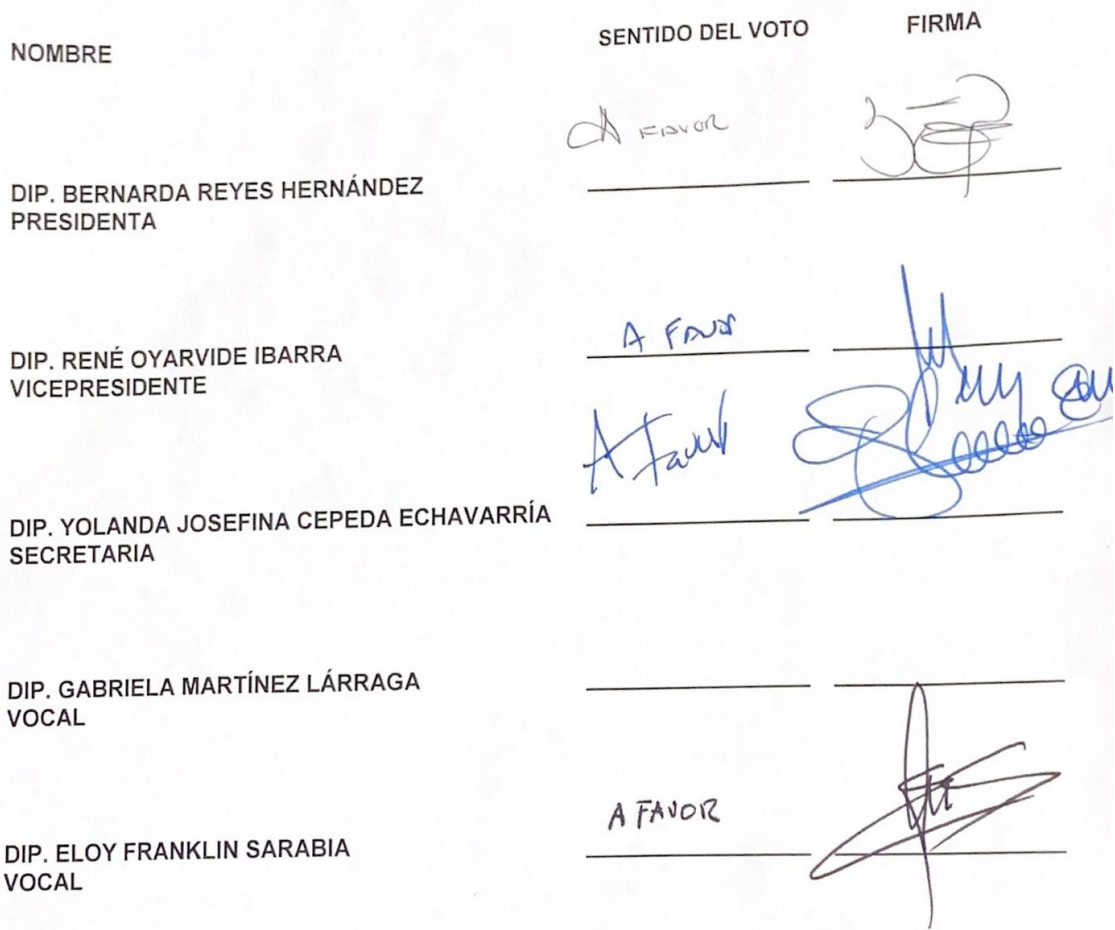 NOMBRE SENTIDO DEL VOTO FIRMA
A FAVOR
DIP. BERNARDA REYES HERNÁNDEZ
PRESIDENTA
A FAVOR
DIP. RENÉ OYARVIDE IBARRA
VICEPRESIDENTE
A Favor
DIP. YOLANDA JOSEFINA CEPEDA ECHAVARRÍA
SECRETARIA
DIP. GABRIELA MARTÍNEZ LÁRRAGA
VOCAL
A FAVOR
DIP. ELOY FRANKLIN SARABIA
VOCAL